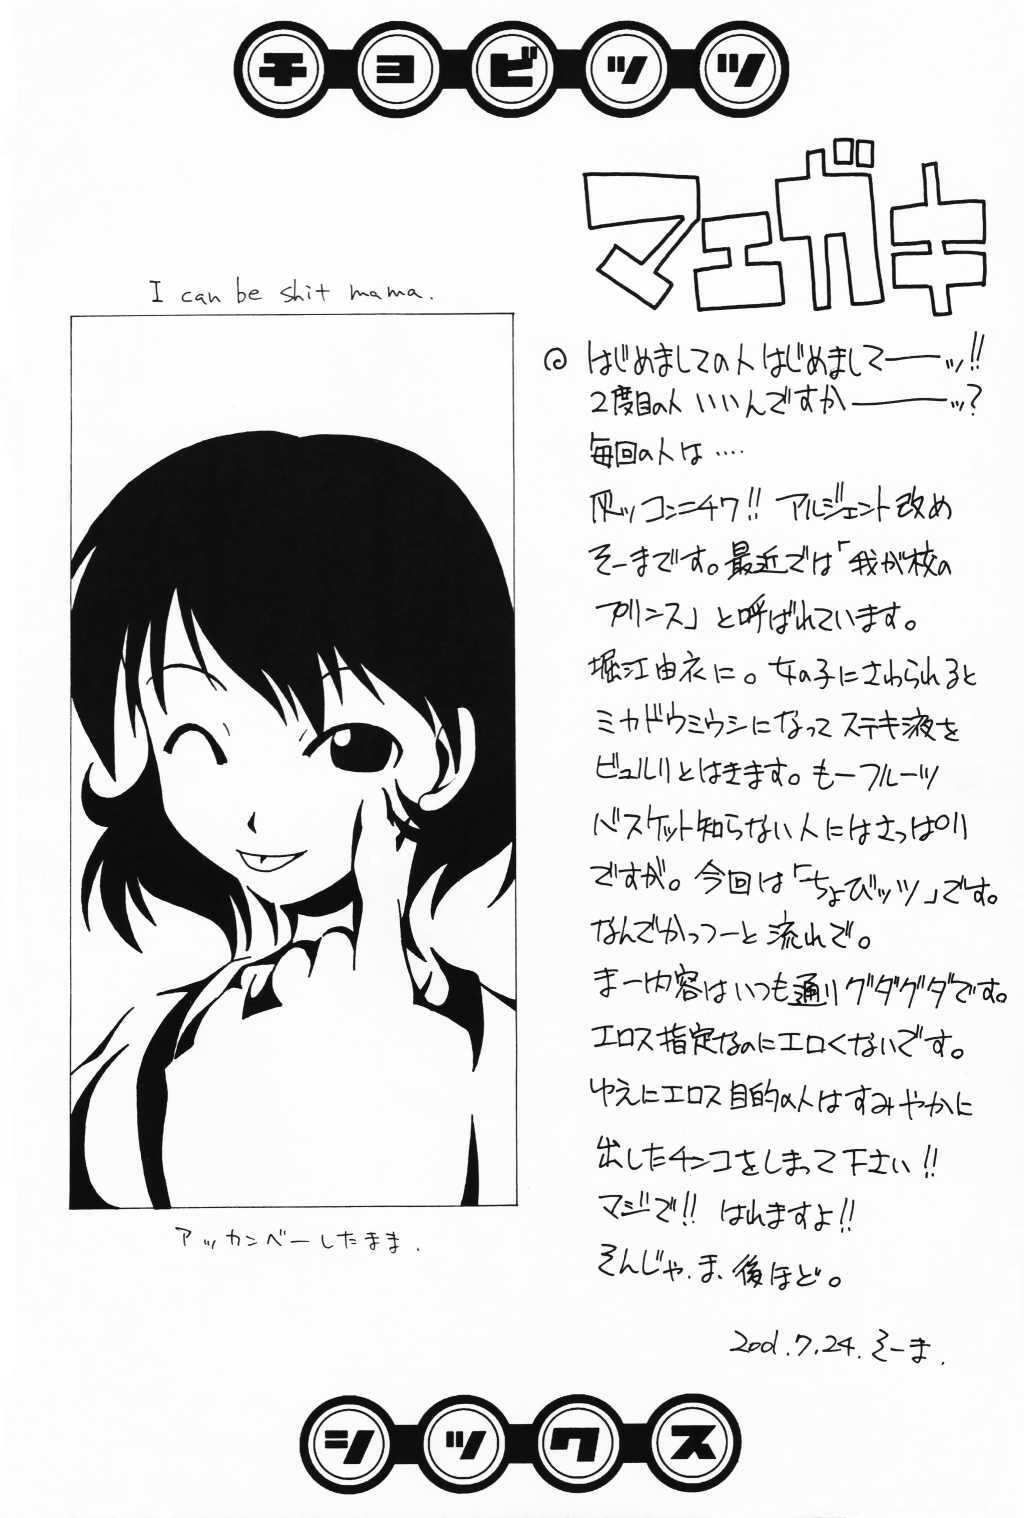 チョビッツ
マエガキ
I can be shit mama.
はじめましての人 はじめまして――ッ!!
2度目の人 いいんですか――ッ?
毎回の人は‥‥
灰ッコンニチワ!! アルジェント改め
そーまです。最近では「我が校の
プリンス」と呼ばれています。
堀江由衣に。女の子にさわられると
ミカドウミウシになってステキ液を
ビュルリとはきます。もーフルーツ
バスケット知らない人にはさっぱり
ですが。今回は「ちょびッツ」です。
なんでかっつーと流れで。
まー内容はいつも通りグダグダです。
エロス指定なのにエロくないです。
ゆえにエロス目的の人はすみやかに
出したチンコをしまって下さい!!
マジで!! はれますよ!!
そんじゃ、ま、後ほど。
2001.7.24. そーま.
アッカンベーしたまま.
シックス